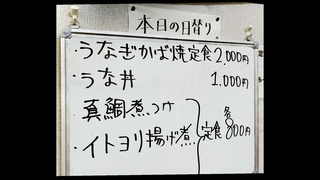 本日の日替り
・うなぎかば焼定食 2,000円
・うな丼 1,000円
・真鯛煮つけ
・イトヨリ揚げ煮
定食 各800円